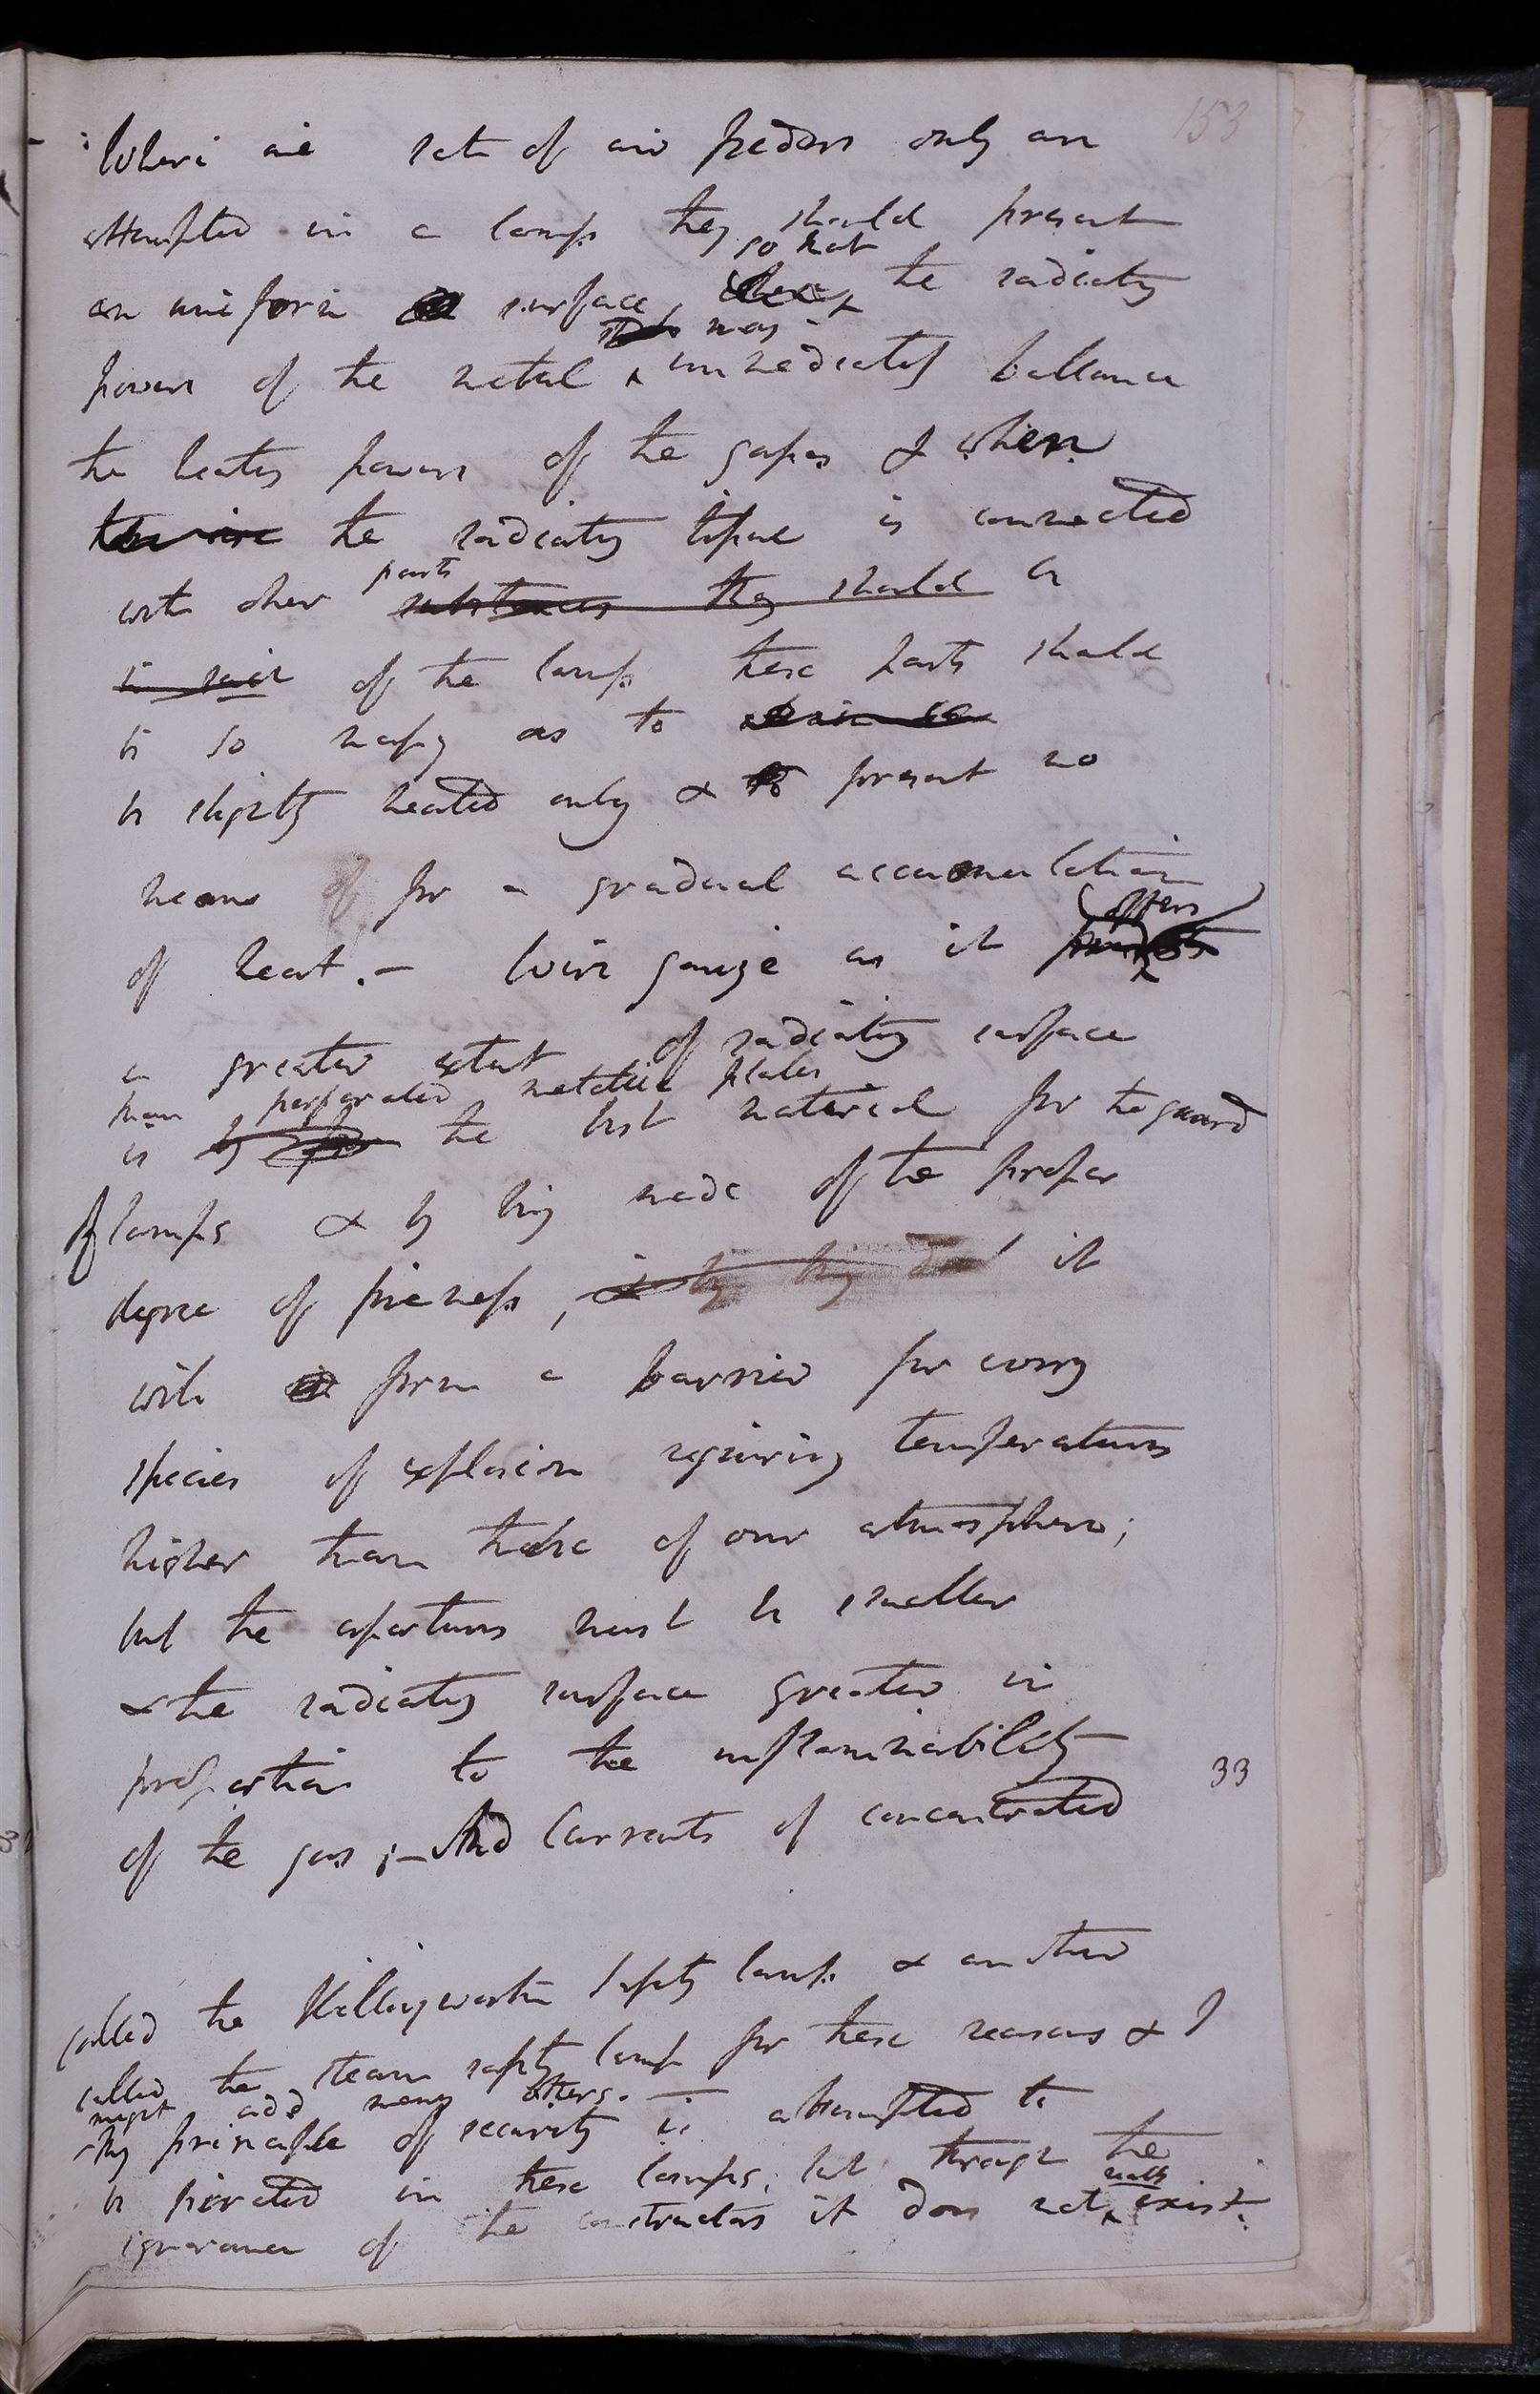 153
Where one set of air feeders only are
attempted in a lamp they should present
so that
an uniform surface, the radiating
may
powers of the metal immediately ballance
the heating powers of the gases & when
the radiating tissue is connected
parts
with other substances they should or
of the lamp these parts should
be so massy as to
be slightly heated only & to present no
means of for a gradual accumulation
offers
of heat. – Wire gauze as it
a greater extent of radiating surface
than perforated metallic plates
is by far the best material for the guard
of lamps & by being made of the proper
degree of fineness, & by being it
will form a barrier for every
species of explosion requiring temperatures
higher than those of our atmosphere;
but the apertures must be smaller
& the radiating surface greater in
proportion to the inflammability
33
of the gas; – And Currents of concentrated
called the Killingworth safety lamp & another
called the steam safety lamp for these reasons & I
might add many others. –
My principle of security is attempted to
be pirated in these lamps, but through the
really
ignorance of the constructors it does not exist.